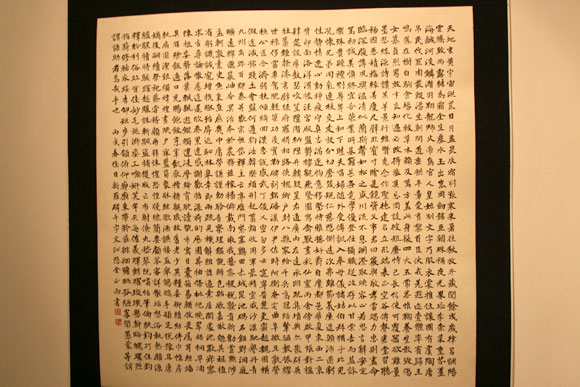 天地玄黃宇宙洪荒日月盈昃辰宿列張寒來暑往秋收冬藏閏餘成歲律呂調陽
雲騰致雨露結為霜金生麗水玉出崑岡劍號巨闕珠稱夜光果珍李柰菜重芥薑
海鹹河淡鱗潛羽翔龍師火帝鳥官人皇始制文字乃服衣裳推位讓國有虞陶唐
弔民伐罪周發殷湯坐朝問道垂拱平章愛育黎首臣伏戎羌遐邇壹體率賓歸王
鳴鳳在樹白駒食場化被草木賴及萬方蓋此身髮四大五常恭惟鞠養豈敢毀傷
女慕貞烈男效才良知過必改得能莫忘罔談彼短靡恃己長信使可覆器欲難量
墨悲絲染詩讚羔羊景行維賢克念作聖德建名立形端表正空谷傳聲虛堂習聽
禍因惡積福緣善慶尺璧非寶寸陰是競資父事君曰嚴與敬孝當竭力忠則盡命
臨深履薄夙興溫凊似蘭斯馨如松之盛川流不息淵澄取映容止若思言辭安定
篤初誠美慎終宜令榮業所基籍甚無竟學優登仕攝職從政存以甘棠去而益詠
樂殊貴賤禮別尊卑上和下睦夫唱婦隨外受傅訓入奉母儀諸姑伯叔猶子比兒
孔懷兄弟同氣連枝交友投分切磨箴規仁慈隱惻造次弗離節義廉退顛沛匪虧
性靜情逸心動神疲守真志滿逐物意移堅持雅操好爵自縻都邑華夏東西二京
背邙面洛浮渭據涇宮殿盤鬱樓觀飛驚圖寫禽獸畫彩仙靈丙舍傍啟甲帳對楹
肆筵設席鼓瑟吹笙陞階納陛弁轉疑星右通廣內左達承明既集墳典亦聚群英
杜稿鍾隸漆書壁經府羅將相路俠槐卿戶封八縣家給千兵高冠陪輦驅轂振纓
世祿侈富車駕肥輕策功茂實勒碑刻銘磻溪伊尹佐時阿衡奄宅曲阜微旦孰營
桓公匡合濟弱扶傾綺回漢惠說感武丁俊乂密勿多士寔寧晉楚更霸趙魏困橫
假途滅虢踐土會盟何遵約法韓弊煩刑起翦頗牧用軍最精宣威沙漠馳譽丹青
九州禹跡百郡秦并嶽宗恆岱禪主云亭雁門紫塞雞田赤城昆池碣石鉅野洞庭
曠遠綿邈巖岫杳冥治本於農務茲稼穡俶載南畝我藝黍稷稅熟貢新勸賞黜陟
孟軻敦素史魚秉直庶幾中庸勞謙謹敕聆音察理鑑貌辨色貽厥嘉猷勉其祗植
省躬譏誡寵增抗極殆辱近恥林皋幸即兩疏見機解組誰逼索居閒處沉默寂寥
求古尋論散慮逍遙欣奏累遣慼謝歡招渠荷的歷園莽抽條枇杷晚翠梧桐早凋
陳根委翳落葉飄颻遊鵾獨運凌摩絳霄耽讀翫市寓目囊箱易輶攸畏屬耳垣牆
具膳餐飯適口充腸飽飫烹宰飢厭糟糠親戚故舊老少異糧妾御績紡侍巾帷房
紈扇圓潔銀燭煒煌晝眠夕寐藍筍象床弦歌酒讌接杯舉觴矯手頓足悅豫且康
嫡後嗣續祭祀蒸嘗稽顙再拜悚懼恐惶箋牒簡要顧答審詳骸垢想浴執熱願涼
驢騾犢特駭躍超驤誅斬賊盜捕獲叛亡布射僚丸嵇琴阮嘯恬筆倫紙鈞巧任釣
釋紛利俗並皆佳妙毛施淑姿工顰妍笑年矢每催曦暉朗曜璇璣懸斡晦魄環照
指薪修祜永綏吉劭矩步引領俯仰廊廟束帶矜莊徘徊瞻眺孤陋寡聞愚蒙等誚
謂語助者焉哉乎也 春佳日 千字文 金 書